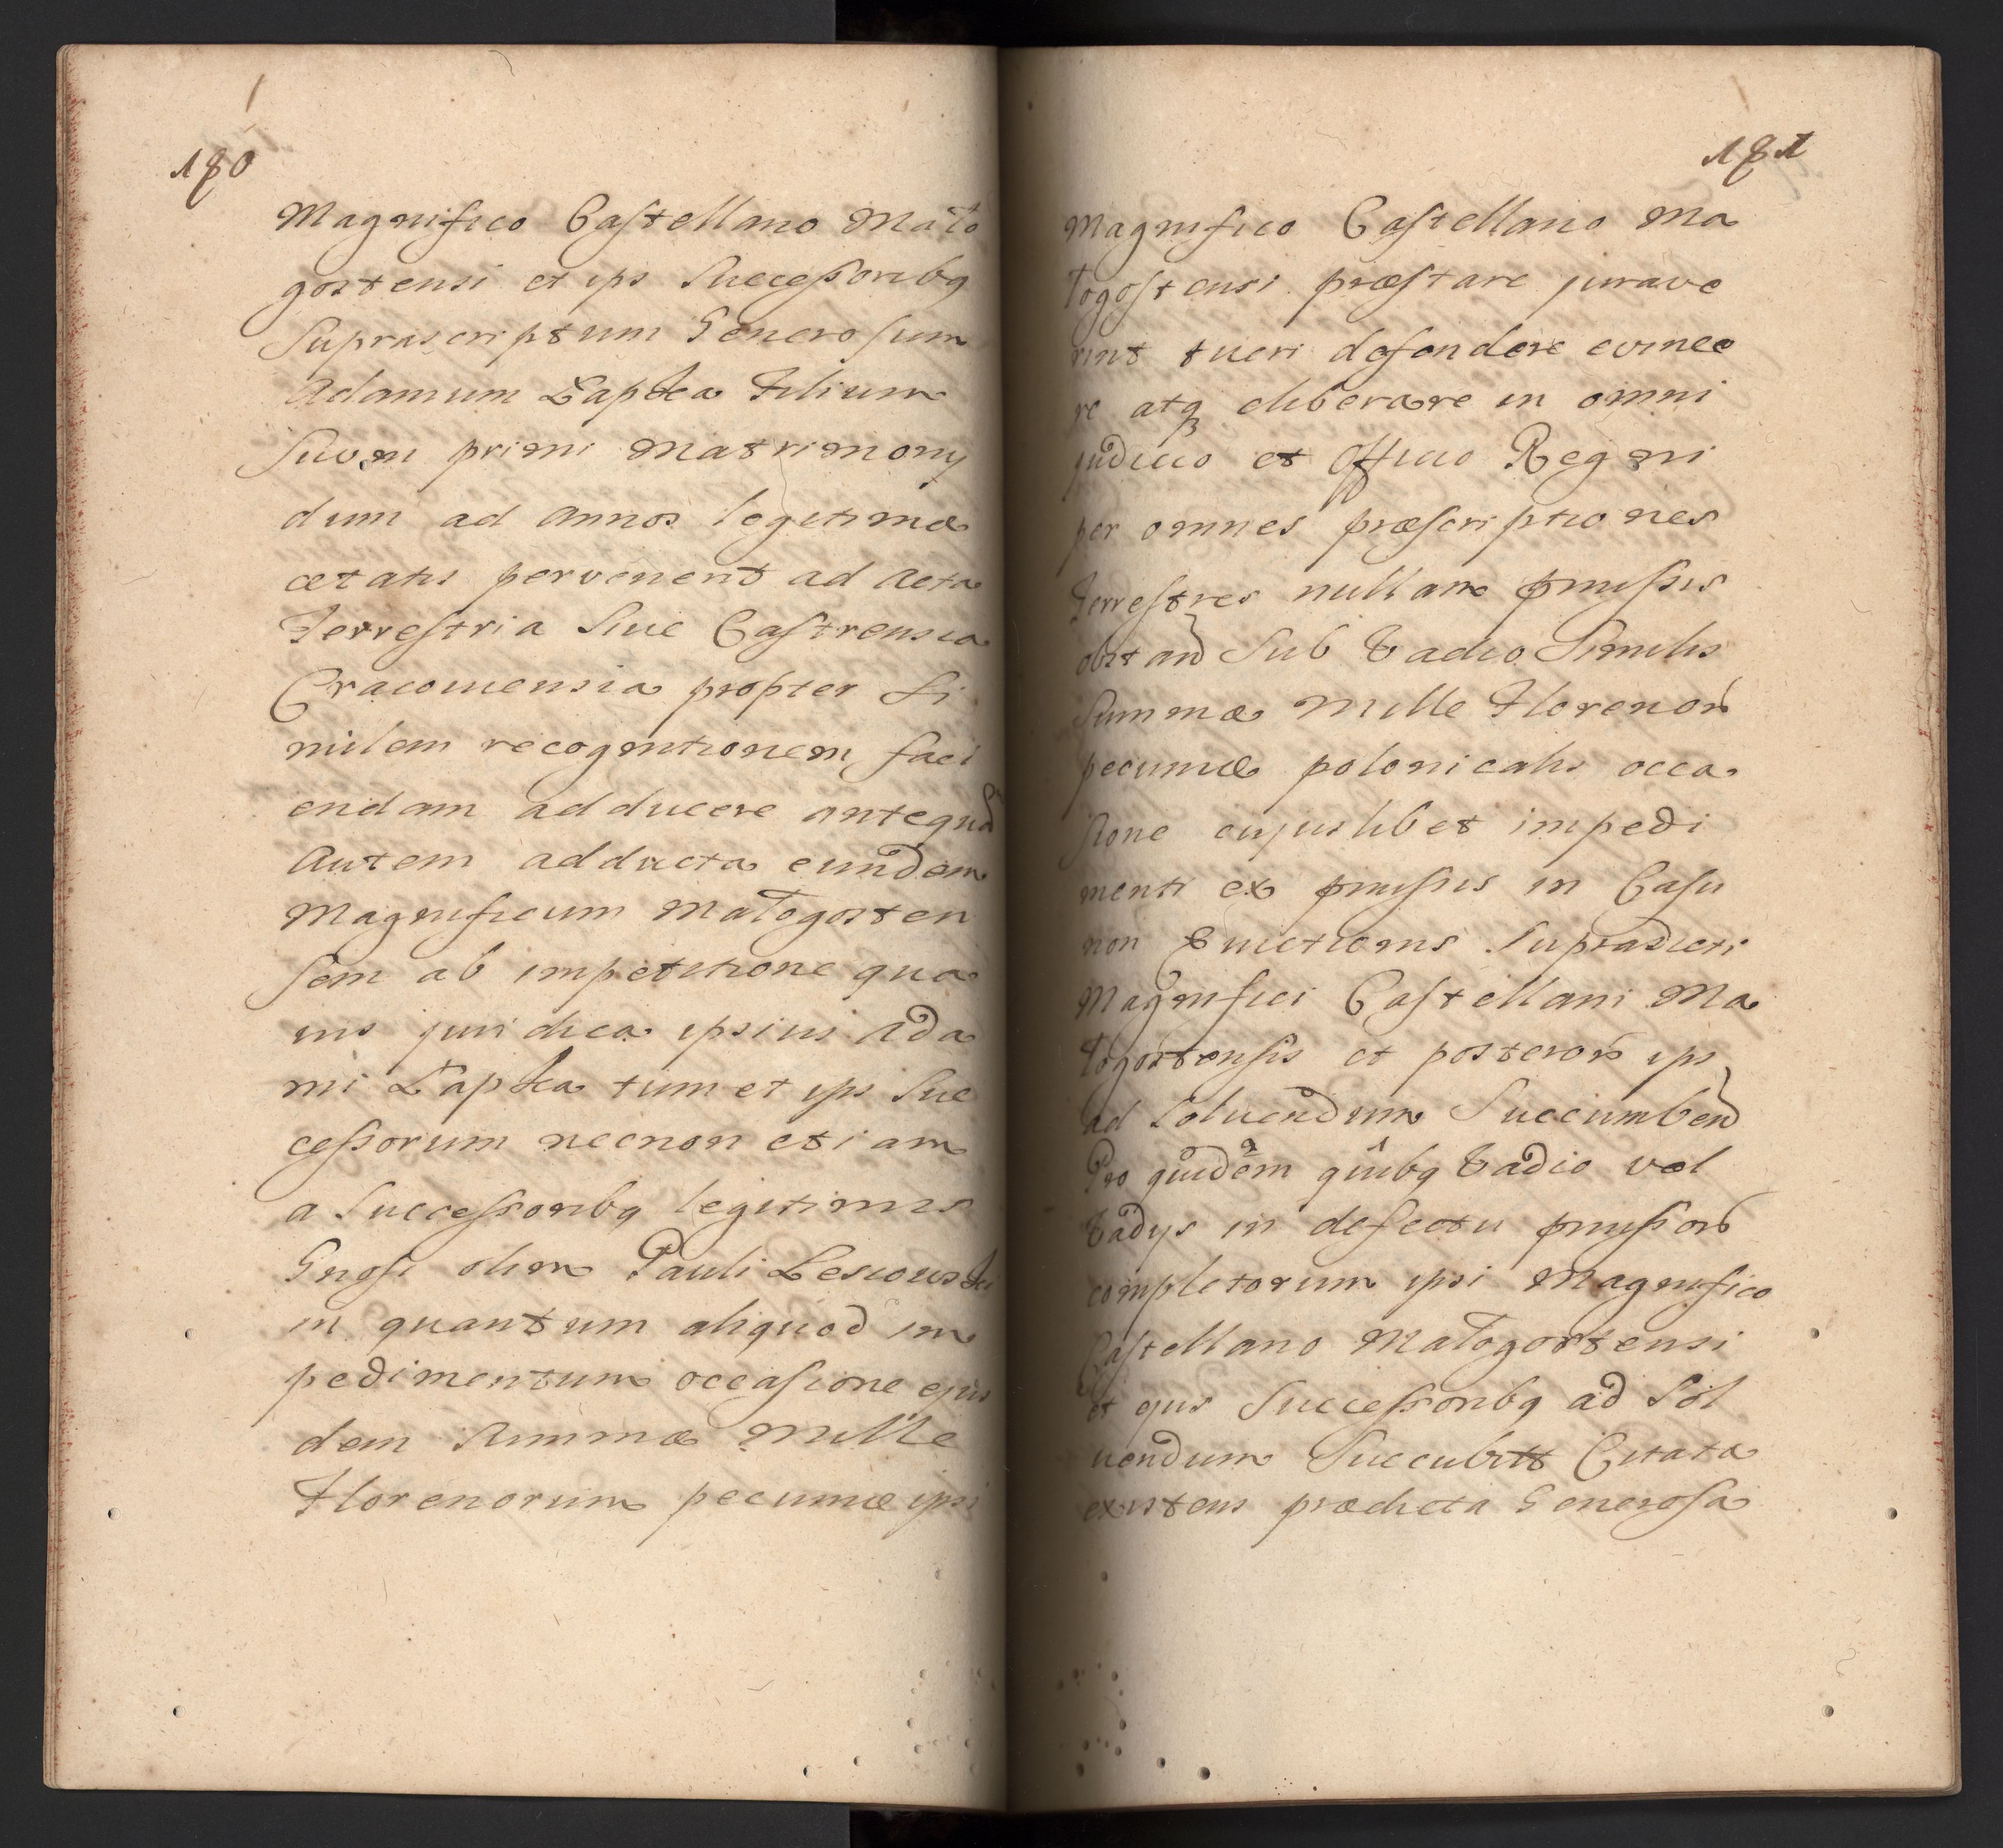 180
Magnifico Castellano Mało
gostensi et ips Successoribq
Suprascriptum Generosum
Adamum Łapka Filium
Suum primi Matrimony
dum ad Annos legitimæ
ætatis pervenerit ad Acta
Terrestria Sive Castrensia
Cracoviensia propter Si
milem recognitionem faci
endam adducere antequā
Autem adducta eundem
Magnificum Małogosten
sem ab impetitione qua
vis juridica ipsius Ada
mi Łapka tum et ips Suc
cessorum necnon etiam
a Successoribq legitimis
Gnosi olim Pauli Lesiowski
in quantum aliquod im
pedimentum occasione ejus
dem Summæ Mille
Florenorum pecuniæ ipsi
181
Magnifico Castellano Ma
łogostensi præstare jurave
rint tueri defendere evince
re atq eliberare in omni
judicio et Officio Regni
per omnes præscriptiones
Terrestres nullam pmissis
obstand Sub Vadio Similis
Summæ Mille Florenor
pecuniæ polonicalis occa
sione cujuslibet impedi
menti ex pmissis in Casu
non Evictionis Supradicti
Magnifici Castellani Ma
łogostensis et posteror ips
ad Solvendum Succumbend
Pro quidem quibq Vadio vel
Vadys in defectu pmissor
completorum ipsi Magnifico
Castellano Małogostensi
et ejus Successoribq ad Sol
vendum Succubitt Citata
existens prædicta Generosa